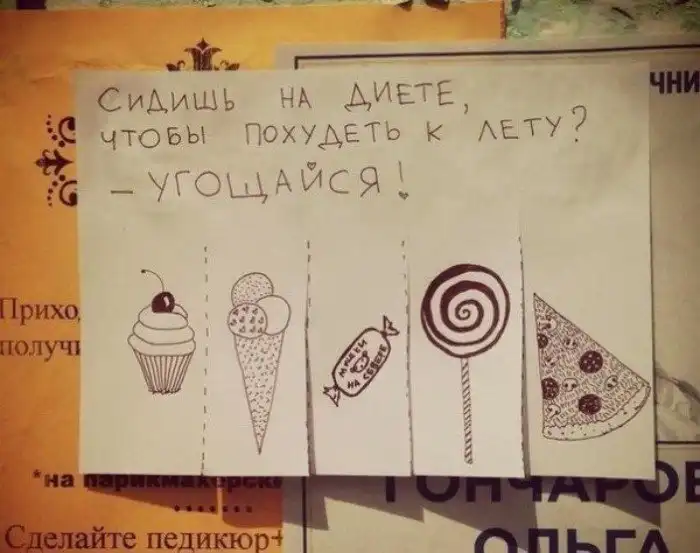 СИДИШЬ НА ДИЕТЕ,
ЧТОБЫ ПОХУДЕТЬ К ЛЕТУ?
– УГОЩАЙСЯ!
МИШКИ
НА СЕВЕРЕ
чни
Прихо
получи
*на парикмахерск
Сделайте педикюр+
ГОНЧАРОВ
ОЛЬГА